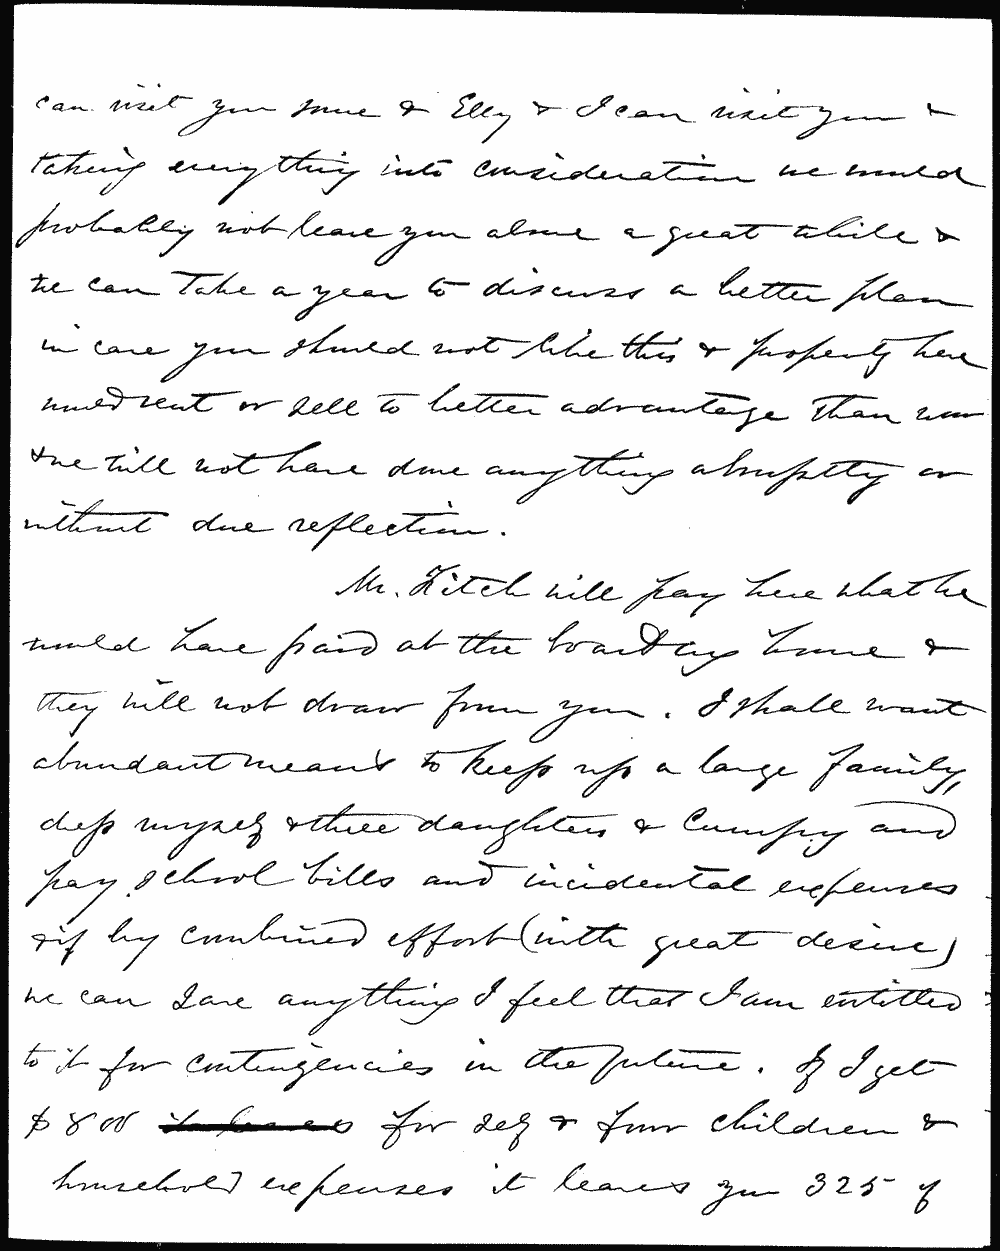 can visit you some & Elly & I can visit you &
taking everything into consideration we would
probably not leave you alone a great while &
we can take a year to discuss a better plan
in case you should not like this & property here
would rent or sell to better advantage than now
& we will not have done anything abruptly or
without due reflection.
Mr. Fitch will pay here what he
would have paid at the boarding house &
they will not draw from you. I shall want
abundant means to keep up a large family,
myself & three daughters & company and
pay school bills and incidental expenses
& if by combined effort (with great desire)
we can save anything I feel that I am entitled
to it for contingencies in the future. If I get
$800 it leaves for self & four children &
household expenses it leaves you 325 of